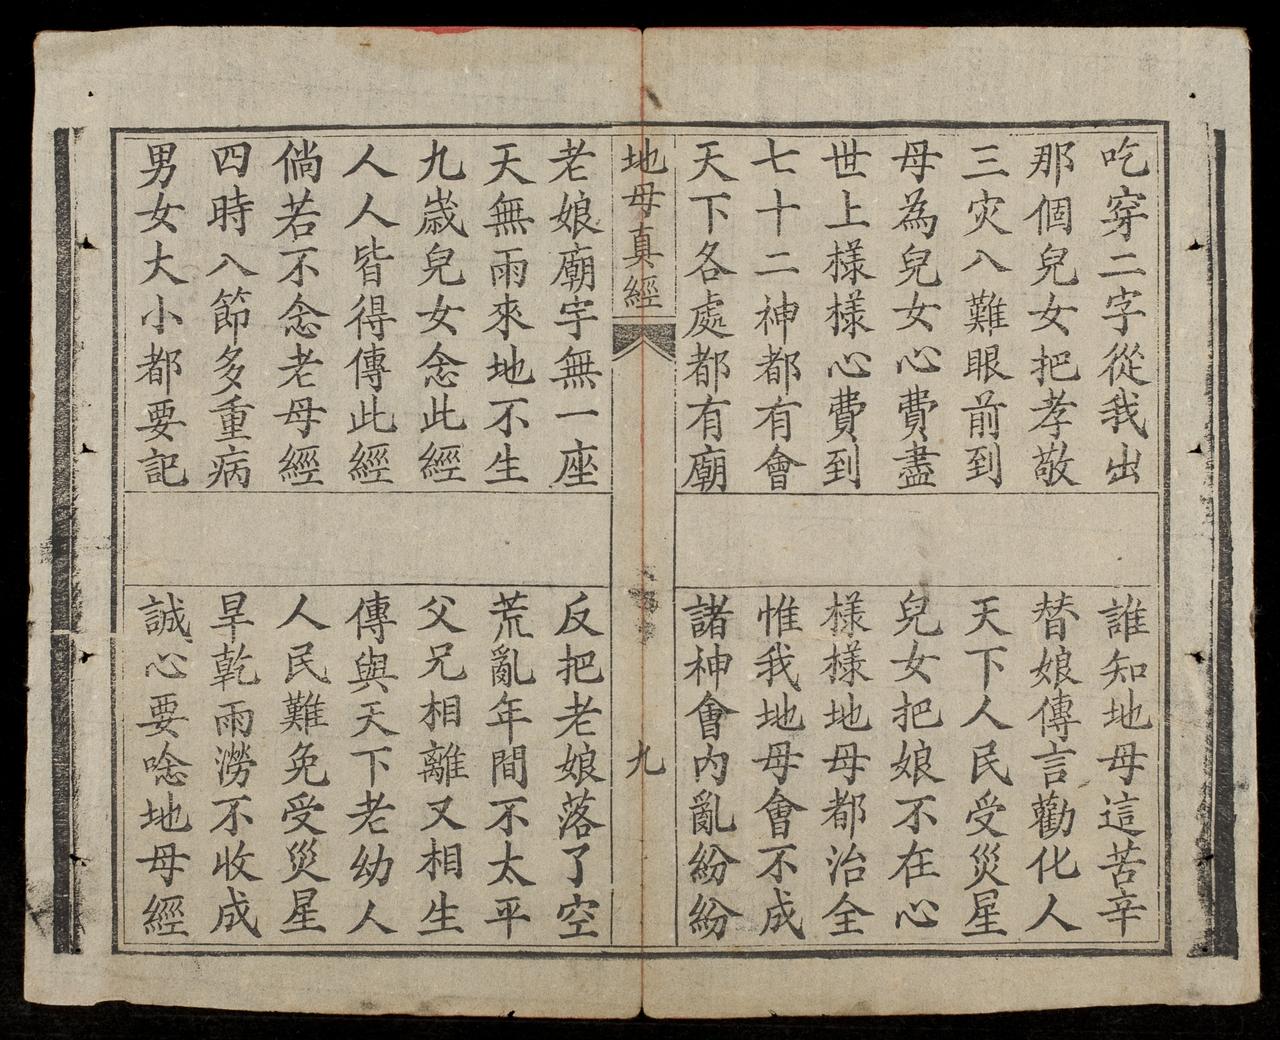 吃穿二字從我出
誰知地母這苦辛
那個兒女把孝敬
替娘傳言勸化人
三灾八難眼前到
天下人民受災星
母為兒女心費盡
兒女把娘不在心
世上樣樣心費到
樣樣地母都治全
七十二神都有會
惟我地母會不成
天下各處都有廟
諸神會內亂紛紛
地母真經
九
老娘廟宇無一座
反把老娘落了空
天無雨來地不生
荒亂年間不太平
九歲兒女念此經
父兄相離又相生
人人皆得傳此經
傳與天下老幼人
倘若不念老母經
人民難免受災星
四時八節多重病
旱乾雨澇不收成
男女大小都要記
誠心要唸地母經